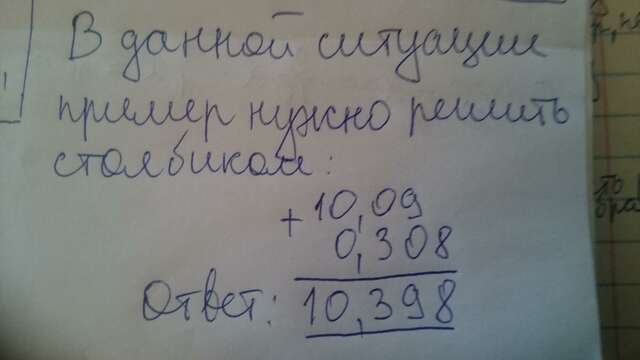 В данной ситуации
пример нужно решить
столбиком:
+ 10,09
0,308
Ответ: 10,398